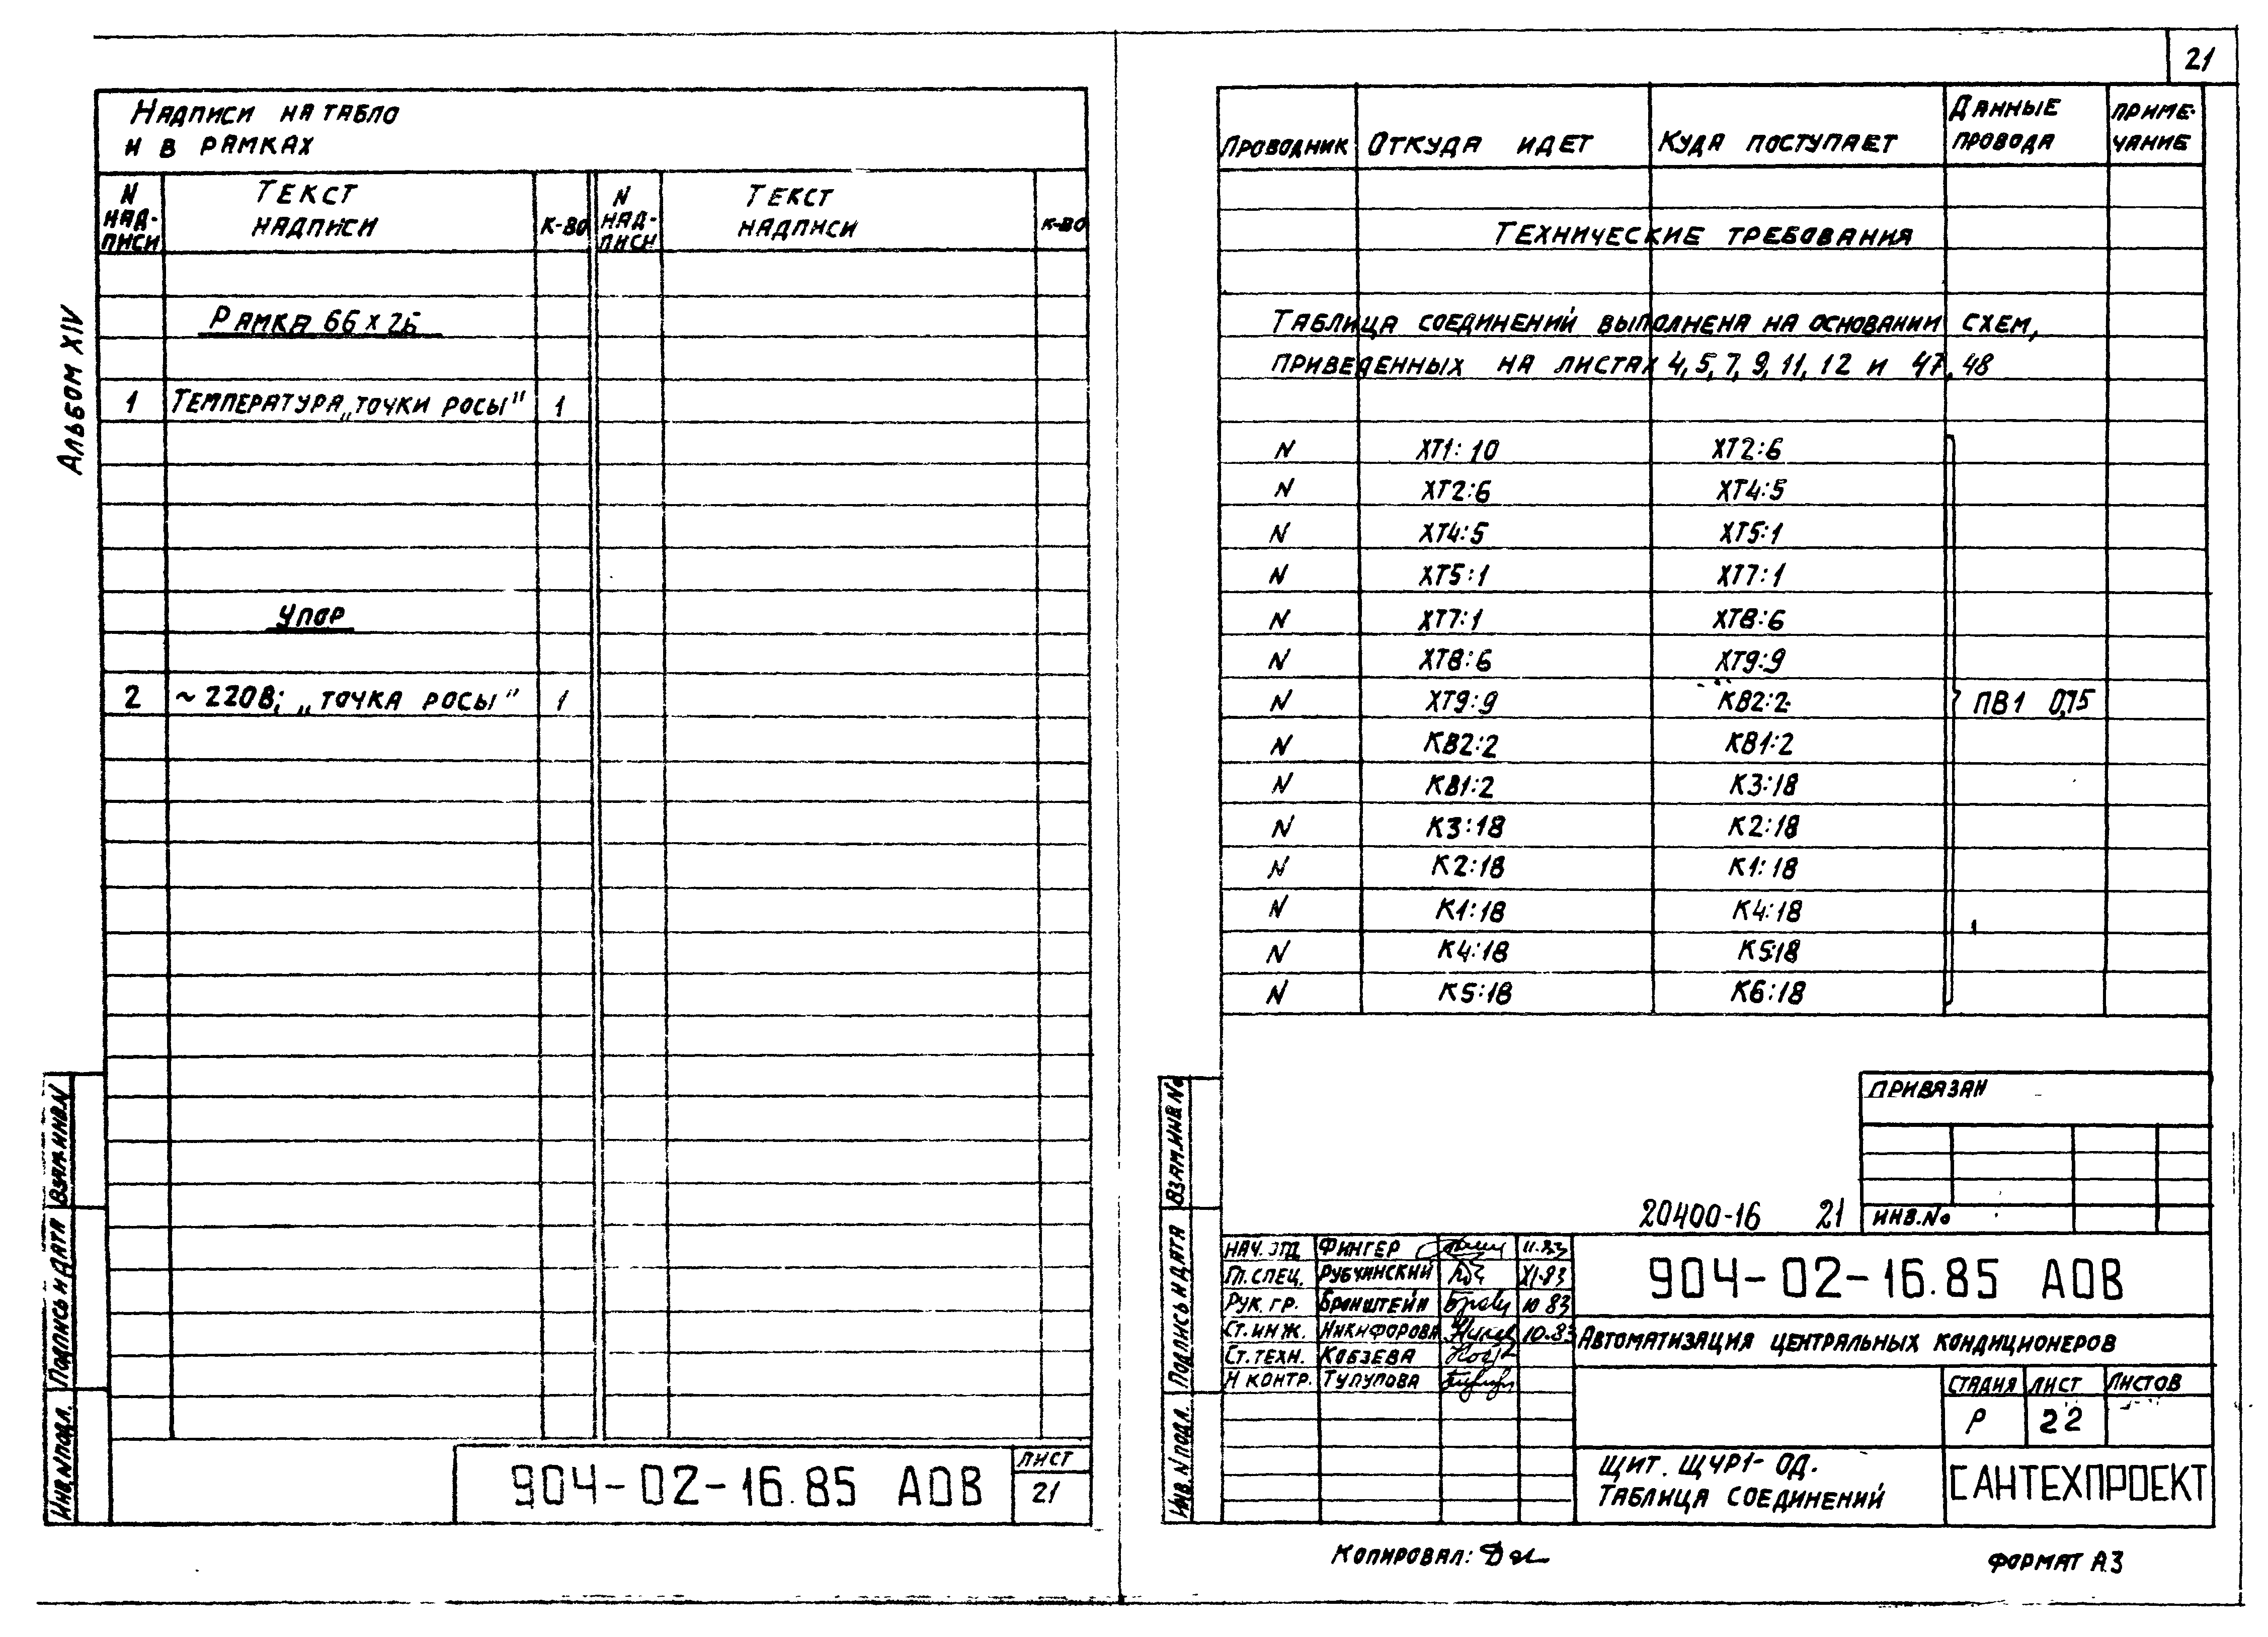 21
Альбом XIV
Надписи на табло
и в рамках
N надписи Текст надписи К-во N надписи Текст надписи К-во
Рамка 66 х 26
1 Температура „точки росы" 1
Упор
2 ~220В; „точка росы" 1
Инв. N подл. Подпись и дата Взам. инв. N
904-02-16.85 АОВ
Лист
21
Проводник Откуда идет Куда поступает Данные провода Примечание
Технические требования
Таблица соединений выполнена на основании схем,
приведенных на листах 4, 5, 7, 9, 11, 12 и 47, 48
N ХТ1:10 ХТ2:6
N ХТ2:6 ХТ4:5
N ХТ4:5 ХТ5:1
N ХТ5:1 ХТ7:1
N ХТ7:1 ХТ8:6
N ХТ8:6 ХТ9:9
N ХТ9:9 КВ2:2 ПВ1 0,75
N КВ2:2 КВ1:2
N КВ1:2 К3:18
N К3:18 К2:18
N К2:18 К1:18
N К1:18 К4:18
N К4:18 К5:18
N К5:18 К6:18
Инв. N подл. Подпись и дата Взам. инв. No
Привязан
20400-16 21
Инв. No
Нач. отд. Фингер 11.83
Гл. спец. Рубчинский XI.83
Рук. гр. Бронштейн 10 83
Ст. инж. Никифорова 10.83
Ст. техн. Кобзева
Н контр. Тулупова
904-02-16.85 АОВ
Автоматизация центральных кондиционеров
Стадия Лист Листов
Р 22
Щит. ЩЧР1-ОД.
Таблица соединений
САНТЕХПРОЕКТ
Копировал:
Формат А3